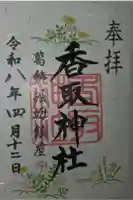 奉拝
香取神社
葛飾
令和八年四月十二日